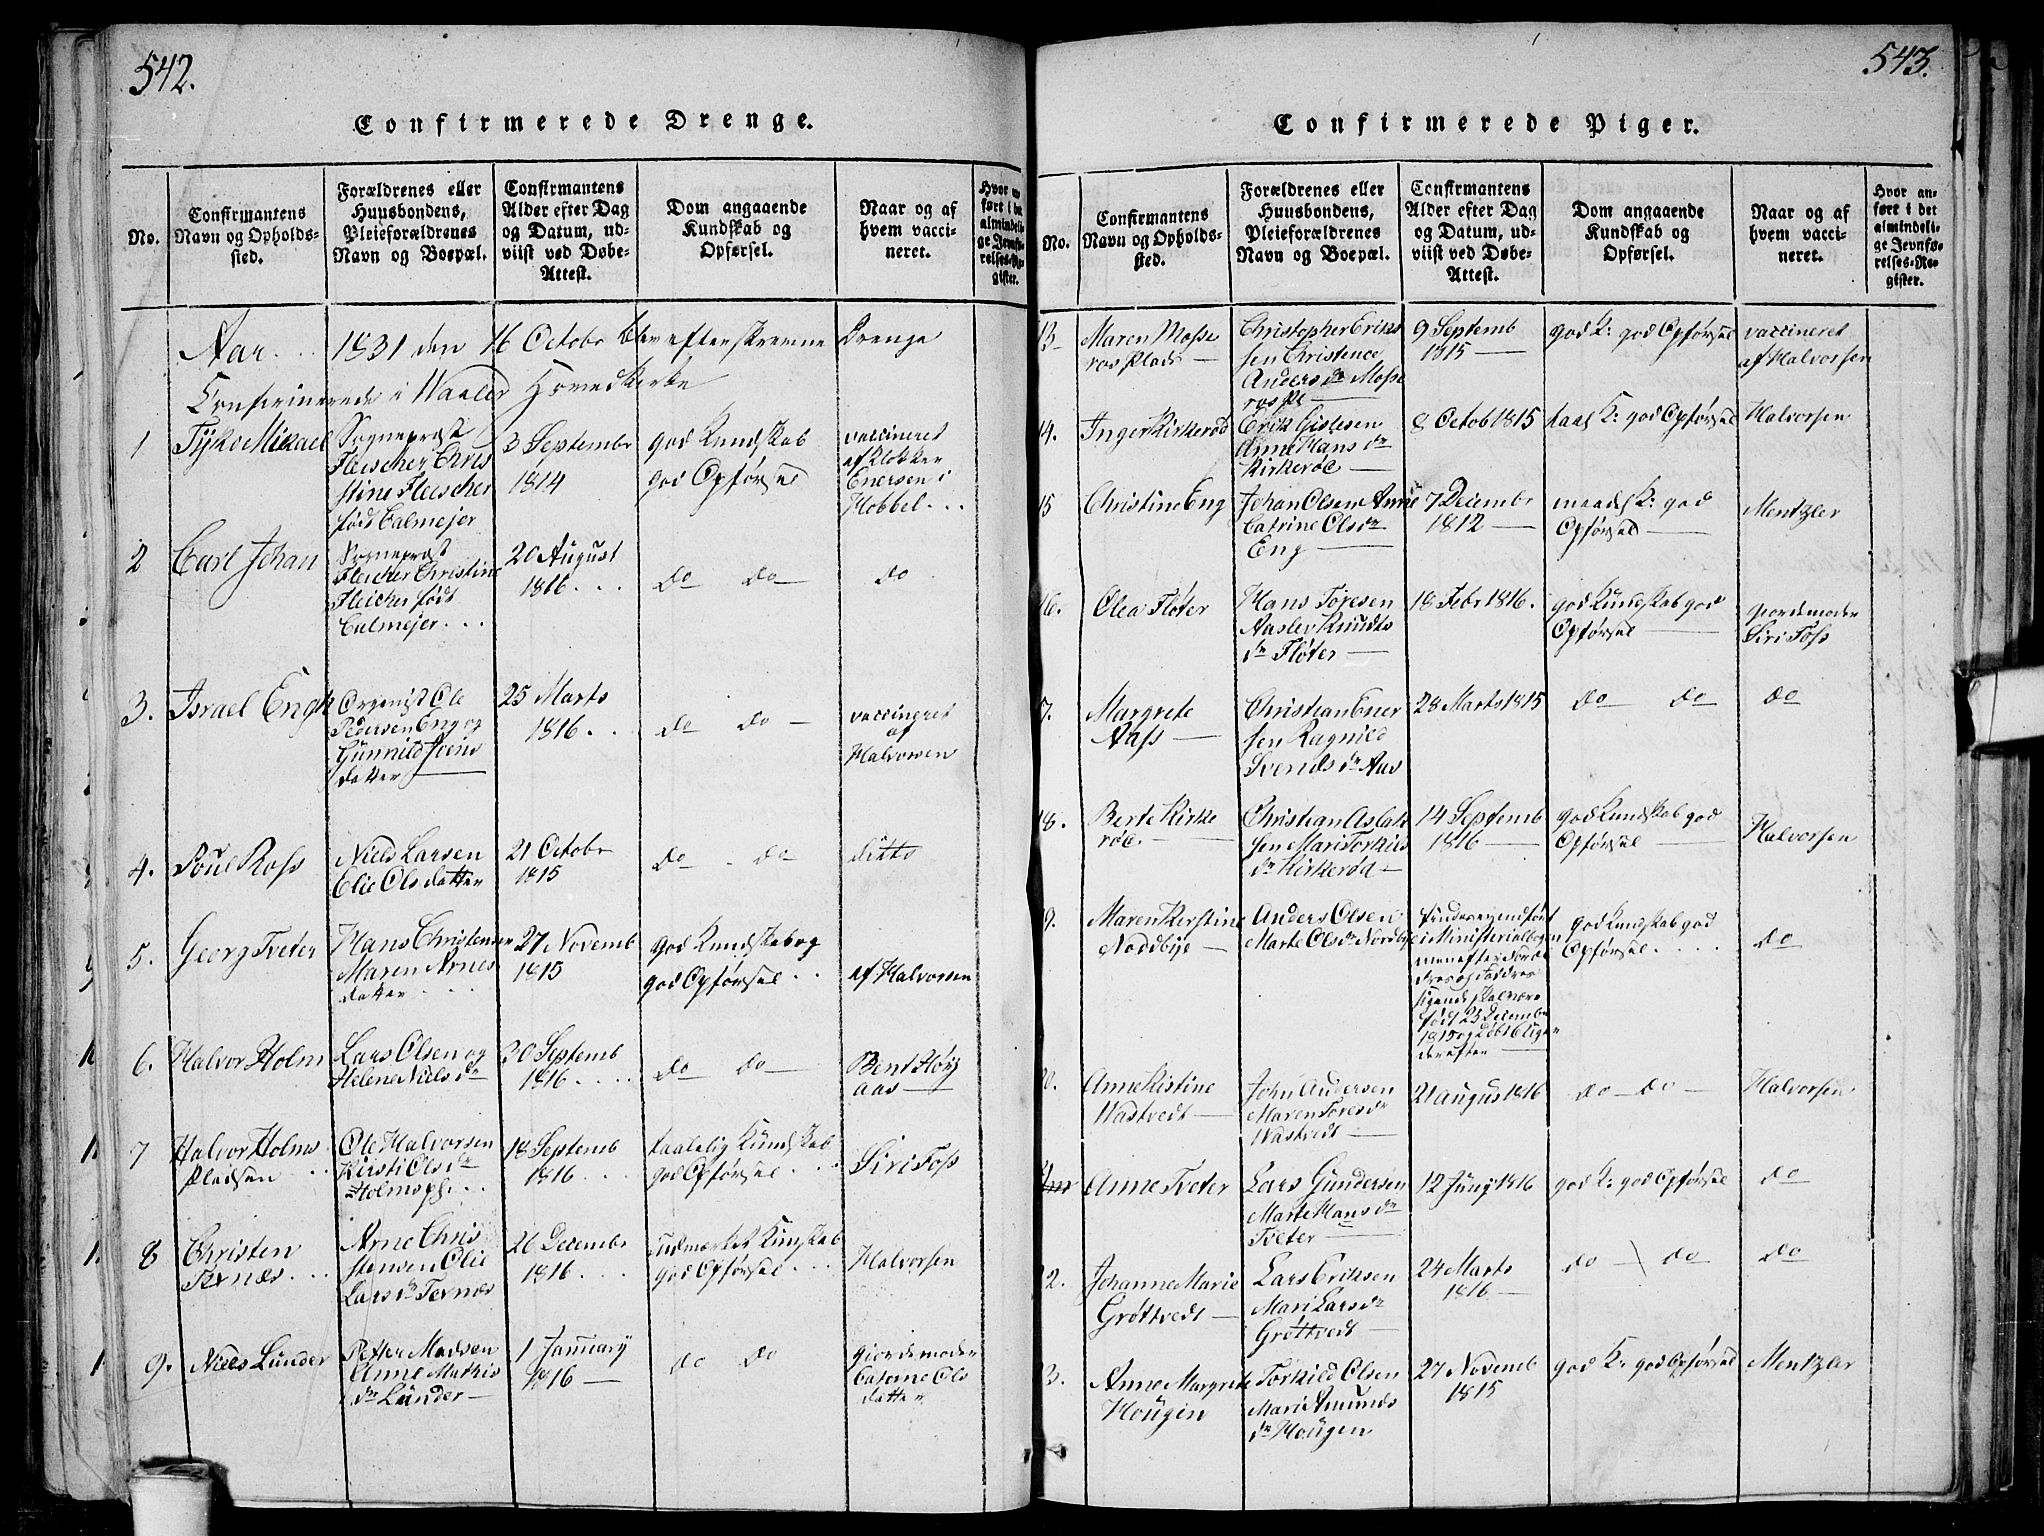 542.
Confirmerede Drenge.
No.
Confirmantens
Navn og Opholds-
sted.
Forældrenes eller
Huusbondens,
Pleieforældrenes
Navn og Boepæl.
Confirmantens
Alder efter Dag
og Datum, ud-
viist ved Døbe-
Attest.
Dom angaaende
Kundskab og
Opførsel.
Naar og af
hvem vacci-
neret.
Hvor an-
ført i det
almindeli-
ge Jevnfø-
relses-Re-
gister.
Aar . . 1831 den 16 Octobr blev efterskrevne Drenge
Confirmerede i Waaler Hovedkirke
1
Tyko Mikael
Sognepræst
Fleischer Chris
stine Fleischer
født Calmejer
3 Septembr
1814
god Kundskab
god Opførsel
vaccineret
af Klokker
Enersen i
Hobbel . . .
2
Carl Johan
Sognepræst
Fleicher Christine
Fleicher født
Calmejer . . .
20 August
1816 . . .
do do
do
3.
Israel Engh
Organist Ole
Pedersen Eng og
Gunnild Svens
datter
25 Marts
1816 . . .
do do
vaccineret
af
Halvorsen
4.
Poul Ross
Niels Larsen
Elie Olsdatter
21 Octobr
1815
do . do
ditto
5.
Georg Tveter
Hans Christensen
Maren Arnes
datter . . .
27 Novemb
1815
god Kundskab og
god Opførsel . .
af Halvorsen
6.
Halvor Holm
Lars Olsen og
Helene Niels dr
30 Septemb
1816 . . . .
do do
Bent Høÿ
aas
7
Halvor Holms
Pladsen . .
Ole Halvorsen
Kirsti Ols dr
Holmspl. . .
18 Septemb
1816 . . .
taalelig Kundskab
god Opførsel . . .
Siri Foss
8
Christen
Ternæs . . .
Arne Chris
stensen Elie
Lars dr Ternæs
26 Decembr
1816 . . .
udmærket Kunskab
god Opførsel . . .
Halvorsen
9.
Niels Lunder
Petter Madsen
Anne Mathis
dr Lunder
1 January
1816
do do
Giordemoder
Catrine Ols
datter
543.
Confirmerede Piger.
No.
Confirmantens
Navn og Opholds-
sted.
Forældrenes eller
Huusbondens,
Pleieforældrenes
Navn og Boepæl.
Confirmantens
Alder efter Dag
og Datum, ud-
viist ved Døbe-
Attest.
Dom angaaende
Kundskab og
Opførsel.
Naar og af
hvem vacci-
neret.
Hvor an-
ført i det
almindeli-
ge Jevnfø-
relses-Re-
gister.
13
Maren Mosse
ros Plads
Christopher Erik
sen Christence
Anders dr Mosse
ros Pl
9 Septemb
1815
god K: god Opførsel
vaccineret
af Halvorsen
14.
Inger Kirkerød
Erik Gislesen
Anne Hans dr
Kirkerøe
8 Octob 1815
taal K: god Opførsel
Halvorsen
15
Christine Eng
Johan Olsen Anne
Catrine Ols dr
Eng
7 Decembr
1812
maadel K: god
Opførsel
Mentzler
16.
Olea Fløter
Hans Toresen
Aaslev Knudts
dr Fløter
18 Febr 1816.
god Kundskab god
Opførsel
Gjordemoder
Siri Foss
7.
Margrete
Aass
Christian Ener
sen Ragnild
Svends dr Aas
28 Marts 1815
do do
do
18.
Berte Kirke
røe.
Christian Aslak
sen Mari Torkils
dr Kirkerød
14 Septemb
1816
god Kundskab god
Opførsel
Halvorsen
9.
Maren Kirstine
Noddbÿe
Anders Olsen
Marte Ols dr Nordbÿe
findes ei indført
i Ministerialbogen
men efter Foræl
dres og Faddres
sigende skal være
født 23 Decembr
1815 og døbt 6 Uger
derefter
god Kundskab god
Opførsel . . . .
do
0.
Anne Kistine
Wastvedt
John Andersen
Maren Tores dr
Wastvedt
21 Augus 1816
do do
Halvorsen
Anne Tveter
Lars Gundersen
Marte Hans dr
Tveter
12 Junÿ 1816
god K: god Opførsel
do
22.
Johanne Marie
Grøttvedt
Lars Eriksen
Mari Lars dr
Grøttvedt
24 Marts
1816
do do
do
3.
Anne Margrete
Hougen
Torkild Olsen
Mari Amunds
dr Hougen
27 Novemb
1815
god K: god Opførsel
Mentzler